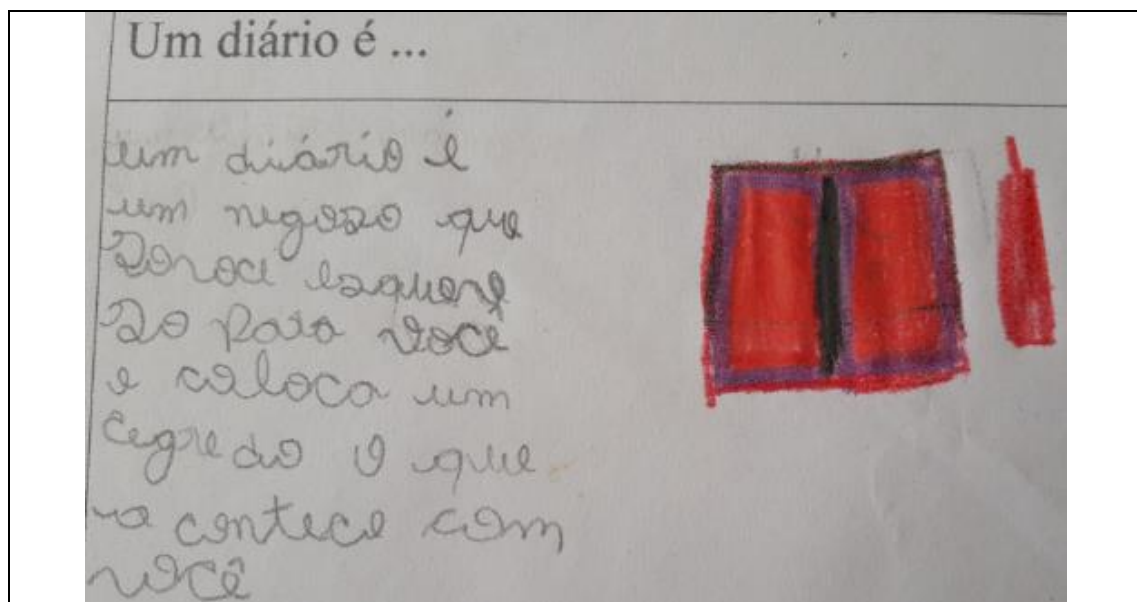 Um diário é ...
um diário é
um negoso que
So voce esquere
So para você
e coloca um
cegredo o que
a contece com
você